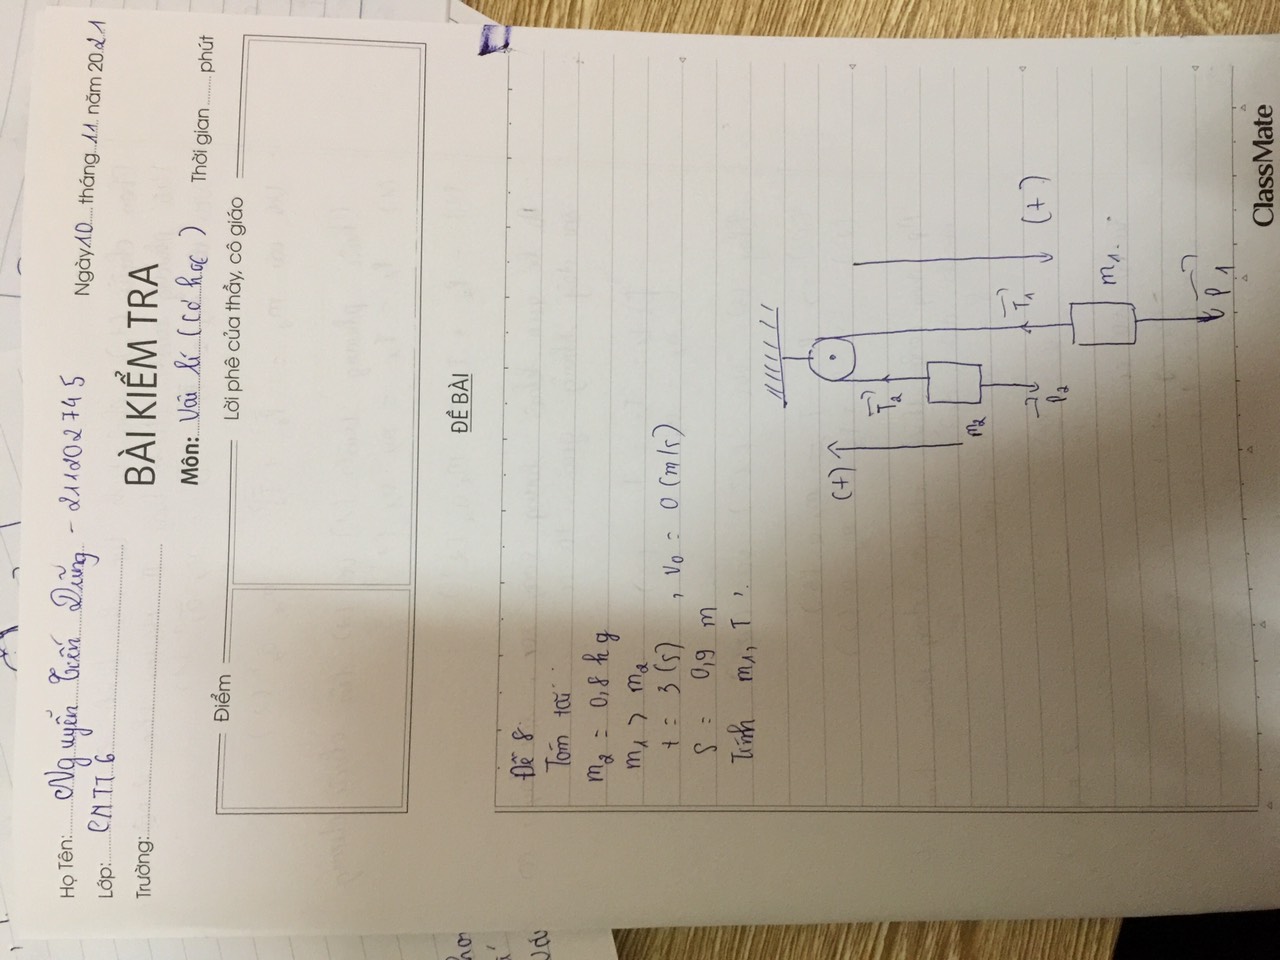 Họ Tên: Nguyễn Tiến Dũng - 211202745
Ngày 10 tháng 11 năm 2021
Lớp: CNTT 6
Trường:
BÀI KIỂM TRA
Môn: Vật lí (Cơ học)
Thời gian phút
Điểm
Lời phê của thầy, cô giáo
ĐỀ BÀI
Đề 8
Tóm tắt
m2 = 0,8 kg
m1 > m2
t = 3 (s) , v0 = 0 (m/s)
S = 0,9 m
Tính m1, T
(+)
T2
m2
T1
P2
(+)
m1
P1
ClassMate